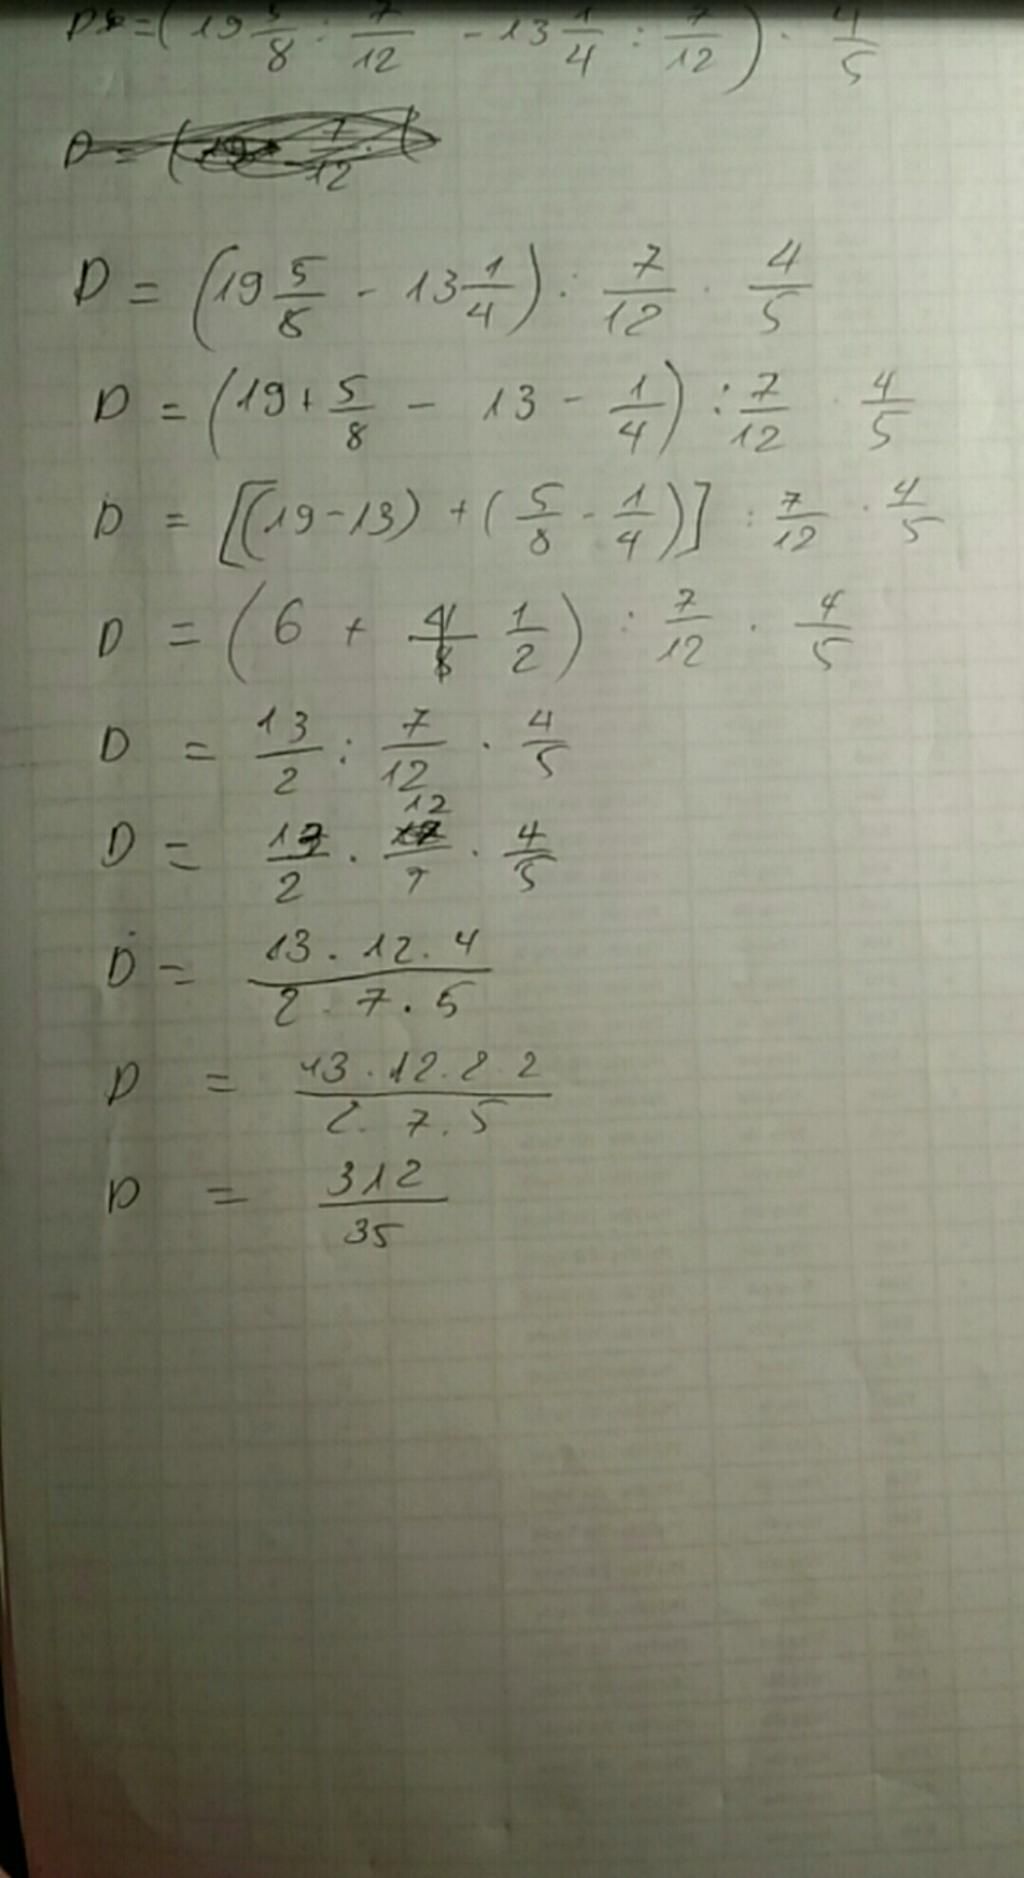 D = (19 5/8 : 7/12 - 13 1/4 : 7/12) . 4/5
D = (19 5/8 - 13 1/4) : 7/12 . 4/5
D = (19 + 5/8 - 13 - 1/4) : 7/12 . 4/5
D = [(19 - 13) + (5/8 - 1/4)] : 7/12 . 4/5
D = (6 + 1/2) : 7/12 . 4/5
D = 13/2 : 7/12 . 4/5
D = 13/2 . 12/7 . 4/5
D = 13 . 12 . 4 / 2 . 7 . 5
D = 13 . 12 . 2 . 2 / 2 . 7 . 5
D = 312/35